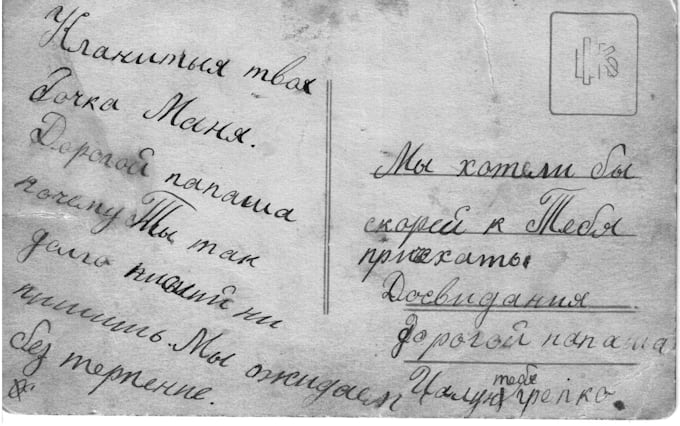 Кланитыя твоя
дочка Маня.
Дорогой папаша
почему Ты так
долго ни
пишишь. Мы ожидаем
без терпение.
Мы хотели бы
скорей к Тебя
приехаты
Досвидания
дорогой папаша
Цалую тебе крепко